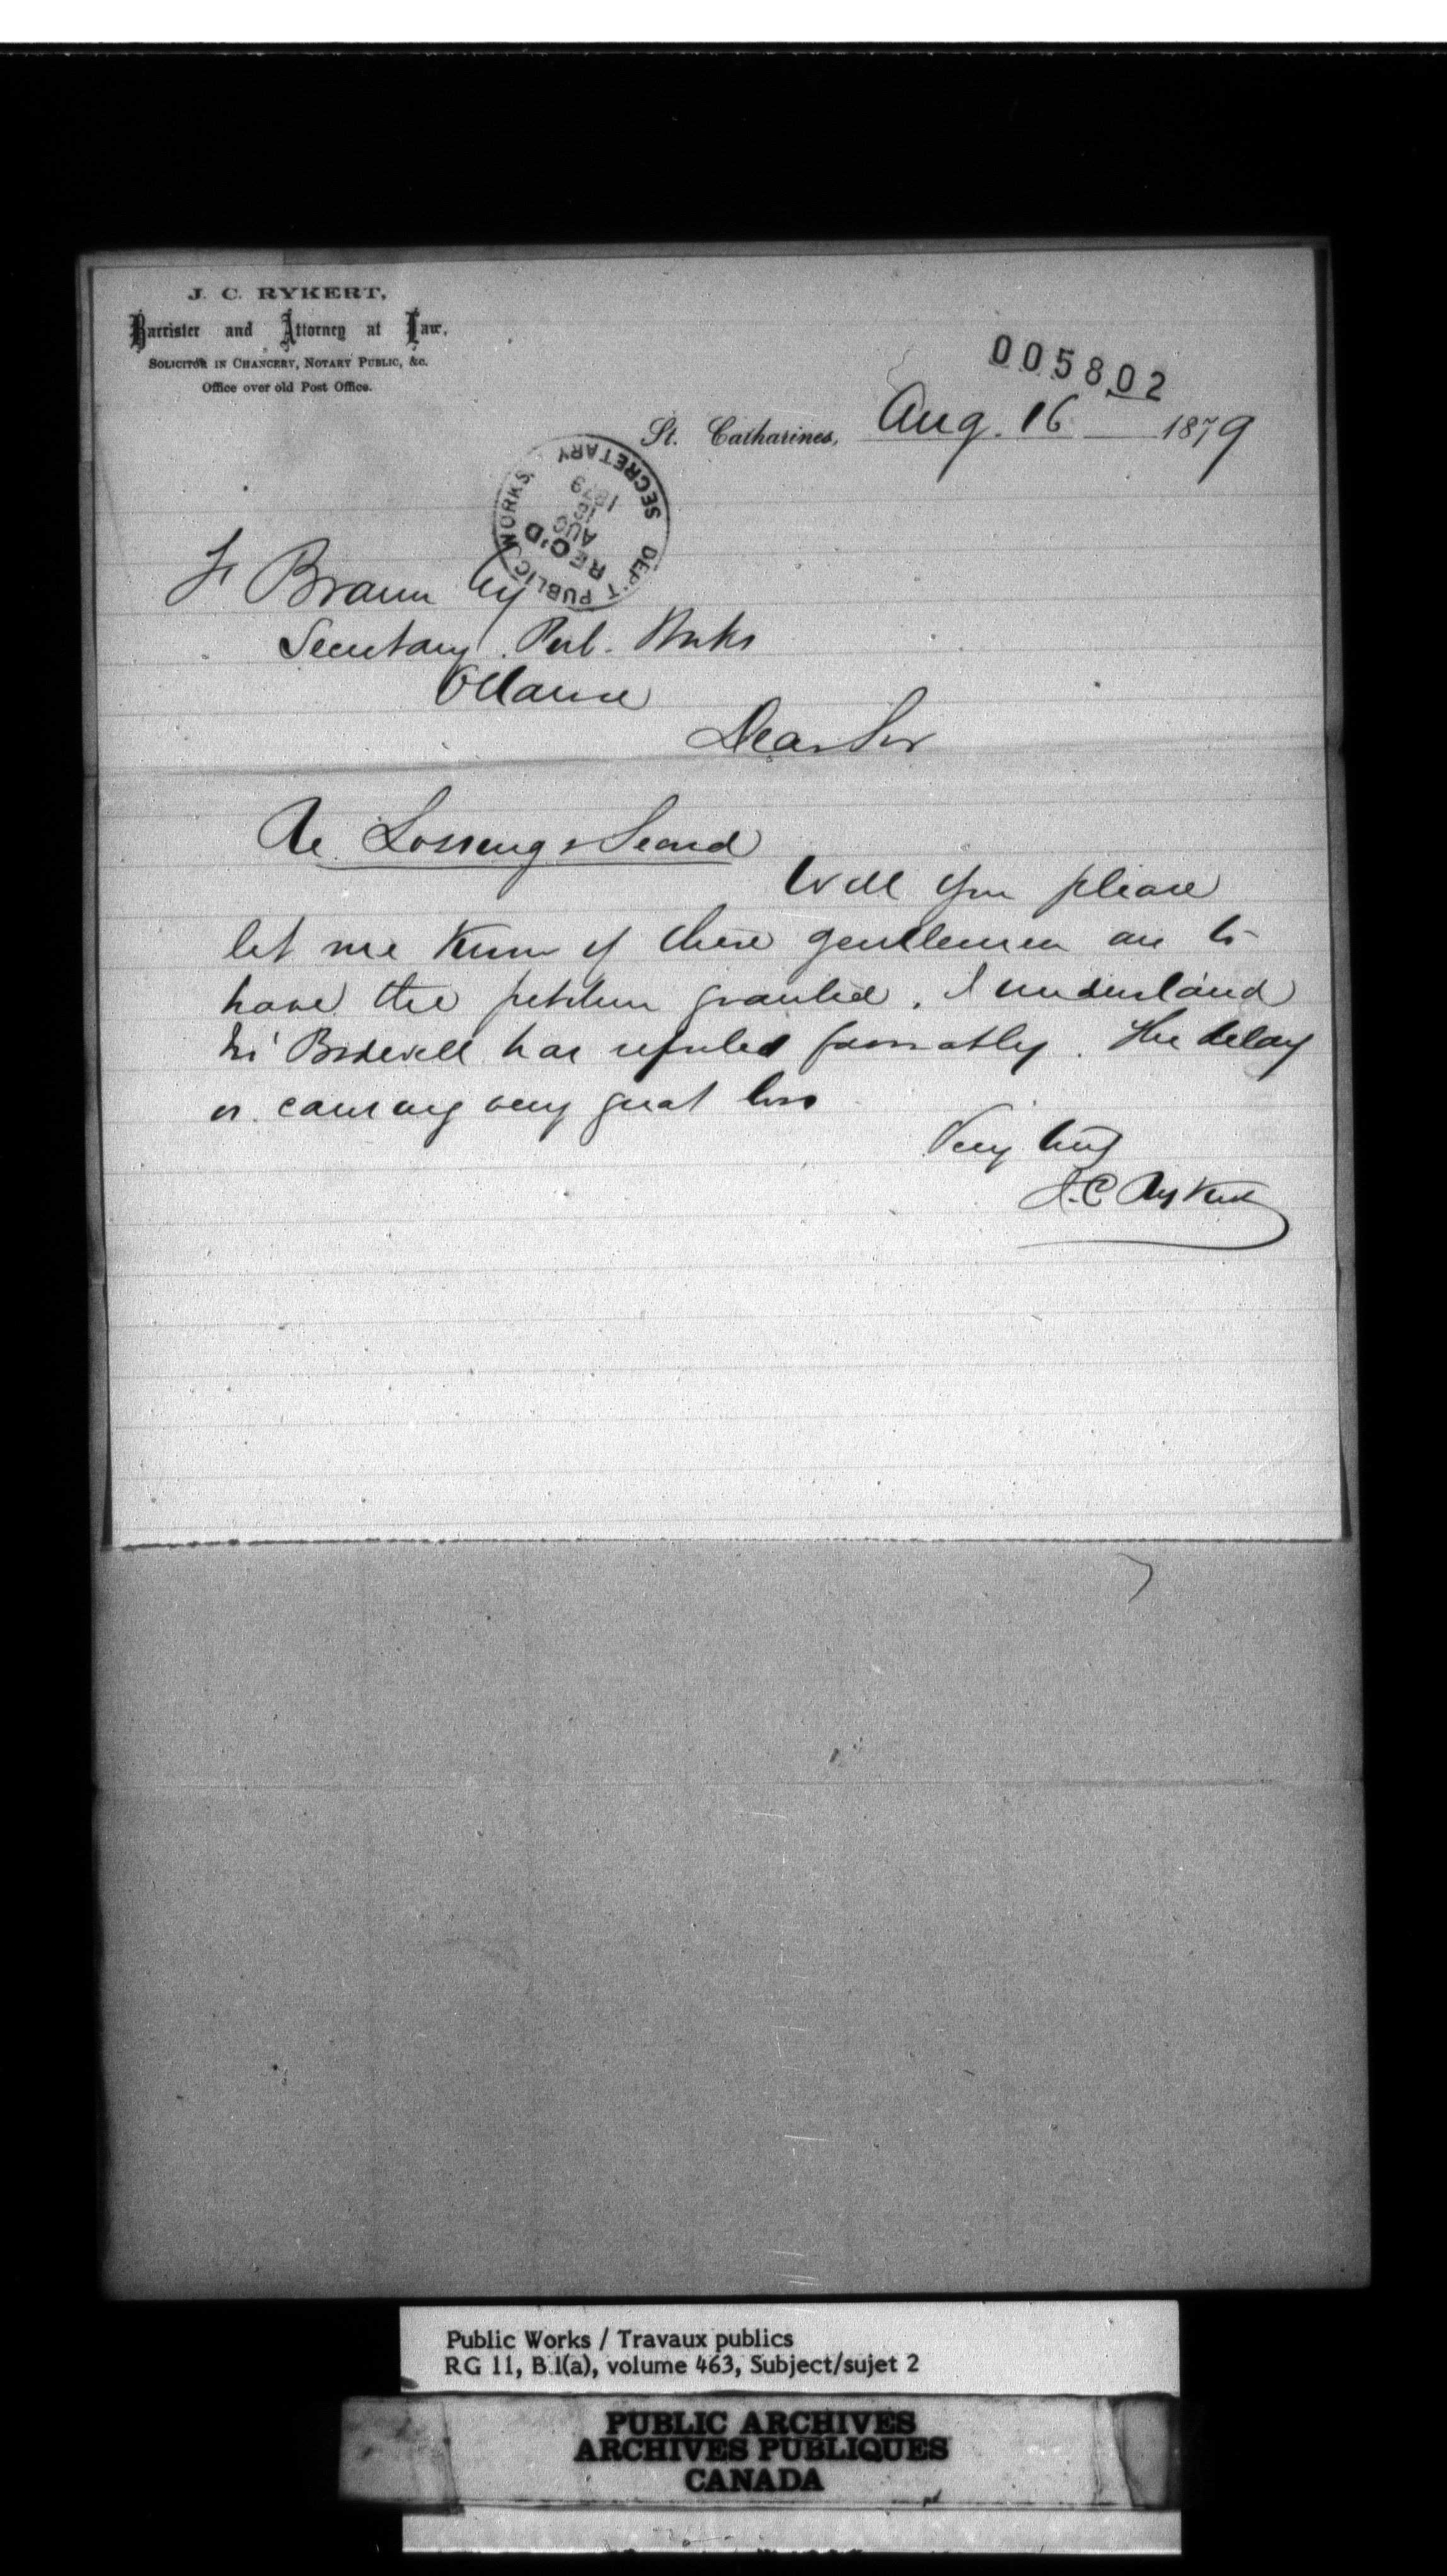 J. C. RYKERT,
Barrister and Attorney at Law,
SOLICITOR IN CHANCERY, NOTARY PUBLIC, &c.
Office over old Post Office.
005802
St. Catharines, Aug. 16 1879
DEP'T PUBLIC WORKS SECRETARY
REC'D
AUG
16
1879
F Braun Esq
Secretary. Pub. Works
Ottawa
Dear Sir
Re Lossing & Secord
Will you please
let me know if these gentlemen are to
have the petition granted. I understand
Mr Bodwell has reported favorably. The delay
is causing very great loss
Very truly
J. C Rykert
Public Works / Travaux publics
RG 11, B.1(a), volume 463, Subject/sujet 2
PUBLIC ARCHIVES
ARCHIVES PUBLIQUES
CANADA